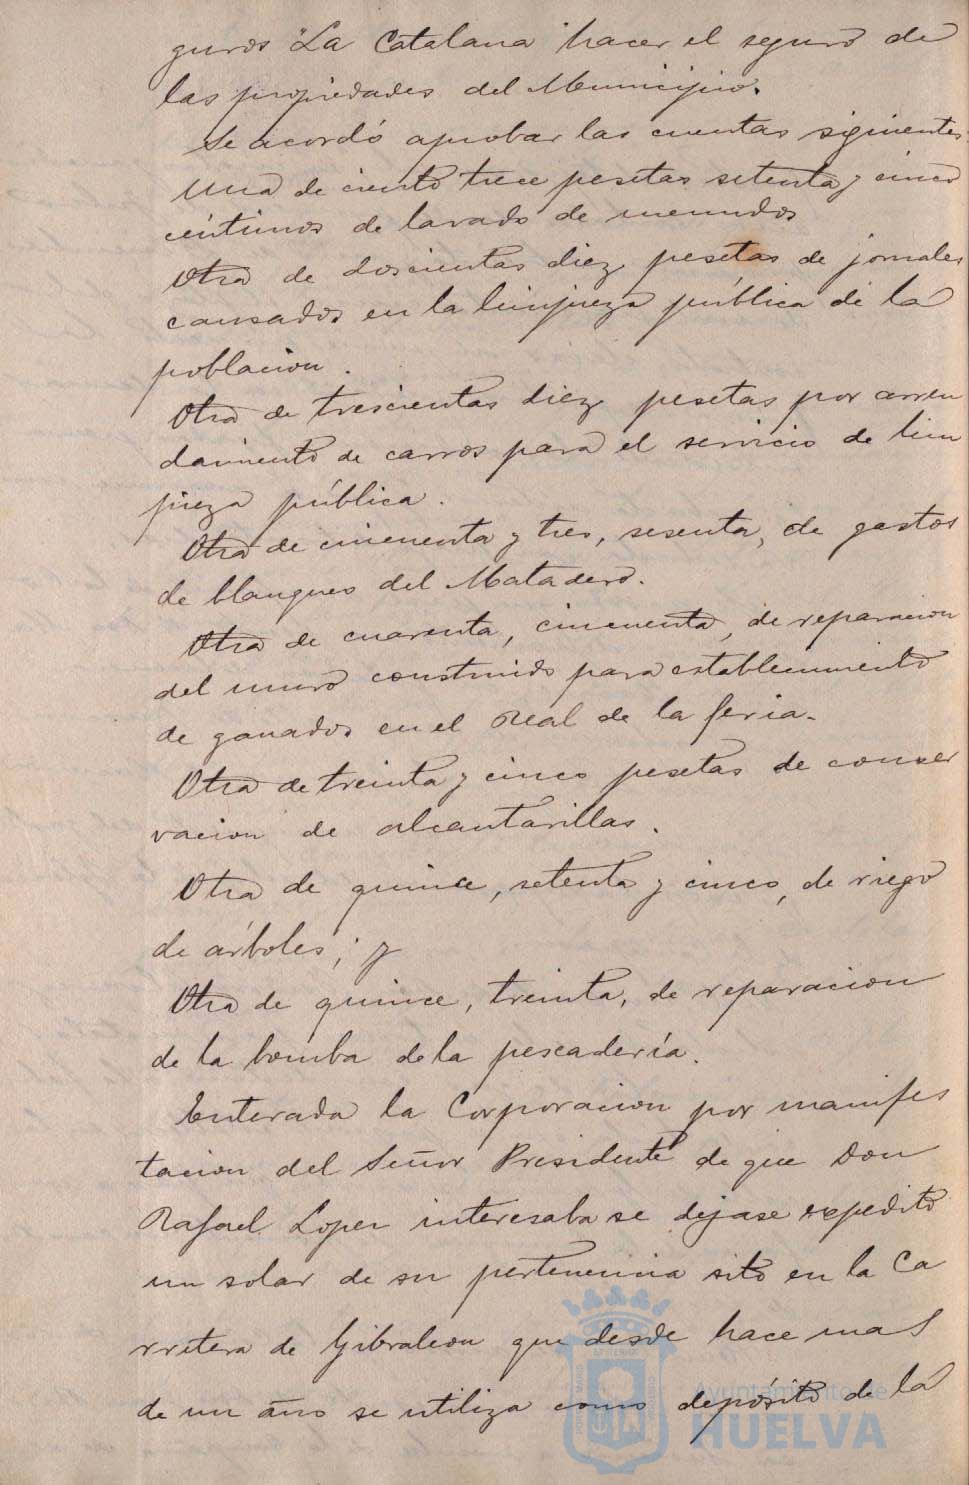 guros "La Catalana hacer el seguro de
las propiedades del Municipio.
Se acordó aprobar las cuentas siguientes
Una de ciento trece pesetas setenta y cinco
céntimos de lavado de menudos
Otra de doscientas diez pesetas de jornales
causados en la limpieza pública de la
poblacion.
Otra de trescientas diez pesetas por arren
damiento de carros para el servicio de lim
pieza pública.
Otra de cincuenta y tres, sesenta, de gastos
de blanqueo del Matadero.
Otra de cuarenta, cincuenta, de reparacion
del muro construido para establecimiento
de ganados en el Real de la feria.
Otra de treinta y cinco pesetas de conser
vacion de alcantarillas.
Otra de quince, setenta y cinco, de riego
de árboles; y
Otra de quince, treinta, de reparacion
de la bomba de la pescadería.
Enterada la Corporacion por manifes
tacion del Señor Presidente de que Don
Rafael Lopez interesaba se dejase expedito
un solar de su pertenencia sito en la Ca
rretera de Gibraleon que desde hace mas
de un año se utiliza como depósito de la
Ayuntamiento de
HUELVA